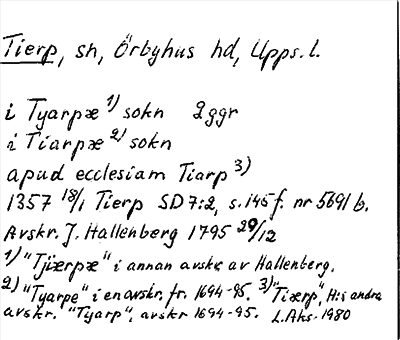 Tierp, sn, Örbyhus hd, Upps. l.
i Tyarpæ 1) sokn 2ggr
i Tiarpæ 2) sokn
apud ecclesiam Tiarp 3)
1357 18/1 Tierp SD 7:2, s. 145 f. nr 5691 b.
Avskr. J. Hallenberg 1795 29/12
1) "Tjiærpæ" i annan avskr. av Hallenberg.
2) "Tyarpe" i en avskr. fr. 1694-95. 3) "Tiærp", H:s andra
avskr. "Tyarp", avskr 1694-95. L.Aks. 1980